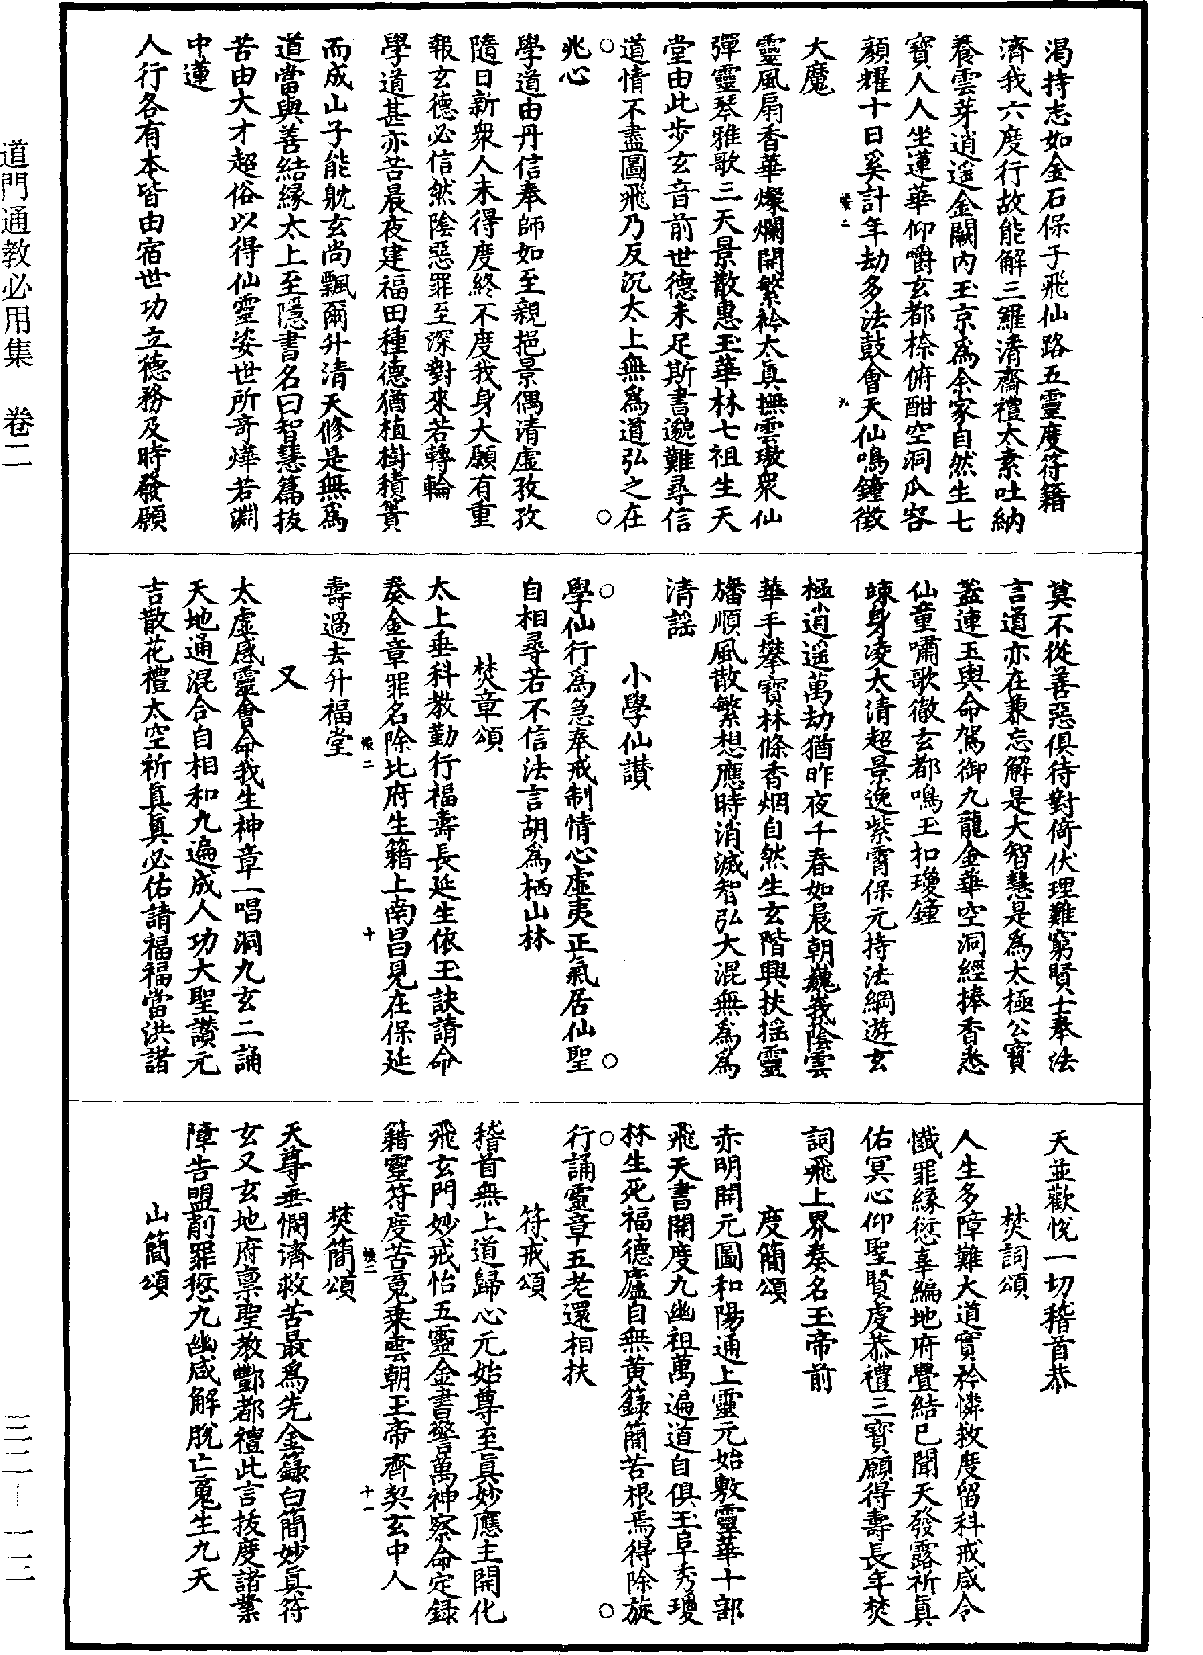 渴持志如金石保子飛仙路五靈度符籍
濟我六度行故能解三羅清齋禮太素吐納
養雲芽逍遥金闕內玉京為余家自然生七
寶人人坐蓮華仰嚼玄都㮈俯酣空洞瓜容
顏耀十日奚計年劫多法鼓會天仙鳴鐘徵
大魔
靈風扇香華燦爛開繁衿太真撫雲璈眾仙
彈靈琴雅歌三天景散惠玉華林七祖生天
堂由此步玄音前世德未足斯書邈難尋信
道情不盡圖飛乃反沉太上無為道弘之在
兆心
學道由丹信奉師如至親挹景偶清虛孜孜
隨日新衆人未得度終不度我身大願有重
報玄德必信然陰惡罪至深對來若轉輪
學道甚亦苦晨夜建福田種德猶植樹積簣
而成山子能躭玄尚飄爾升清天修是無為
道當與善結緣太上至隱書名曰智慧篇拔
苦由大才超俗以得仙靈姿世所奇燁若淵
中蓮
人行各有本皆由宿世功立德務及時發願
莫不從善惡俱待對倚伏理難窮賢士奉法
言道亦在兼忘解是大智慧是為太極公寳
蓋連玉輿命駕御九龍金華空洞經捧香悉
仙童嘯歌徹玄都鳴玉扣瓊鐘
竦身凌太清超景逸紫霄保元持法綱遊玄
極逍遥萬劫猶昨夜千春如晨朝巍峩陰雲
華手攀寶林條香烟自然生玄階興扶摇靈
旛順風散繁想應時消滅智弘大混無為為
清謡
小學仙讃
學仙行為急奉戒制情心虛夷正氣居仙聖
自相尋若不信法言胡為栖山林
焚章頌
太上垂科教勤行福壽長延生依玉訣請命
奏金章罪名除北府生籍上南昌見在保延
壽過去升福堂
又
太虛感靈會命我生神章一唱洞九玄二誦
天地通混合自相和九遍成人功大聖讃元
吉散花禮太空祈真真必佑請福福當洪諸
天並歡悅一切稽首恭
焚詞頌
人生多障難大道實矜憐救度留科戒咸令
懺罪緣愆辜編地府舋結已聞天發露祈真
佑冥心仰聖賢虔恭禮三寶願得壽長年焚
詞飛上界奏名玉帝前
度簡頌
赤明開元圖和陽通上靈元始敷靈華十部
飛天書開度九幽祖萬遍道自俱玉阜秀瓊
林生死福德廬自無黃籙簡苦根焉得除旋
行誦靈章五老還相扶
符戒頌
稽首無上道歸心元始尊至真妙應主開化
飛玄門妙戒怡五靈金書誓萬神察命定録
籍靈符度苦䰟乘雲朝玉帝齊契玄中人
焚簡頌
天尊垂憫濟救苦最為先金籙白簡妙真符
玄又玄地府禀聖教酆都禮此言拔度諸業
障告盟削罪愆九幽咸解脫亡䰟生九天
山簡頌
道門通教必用集　卷二
三二—一三